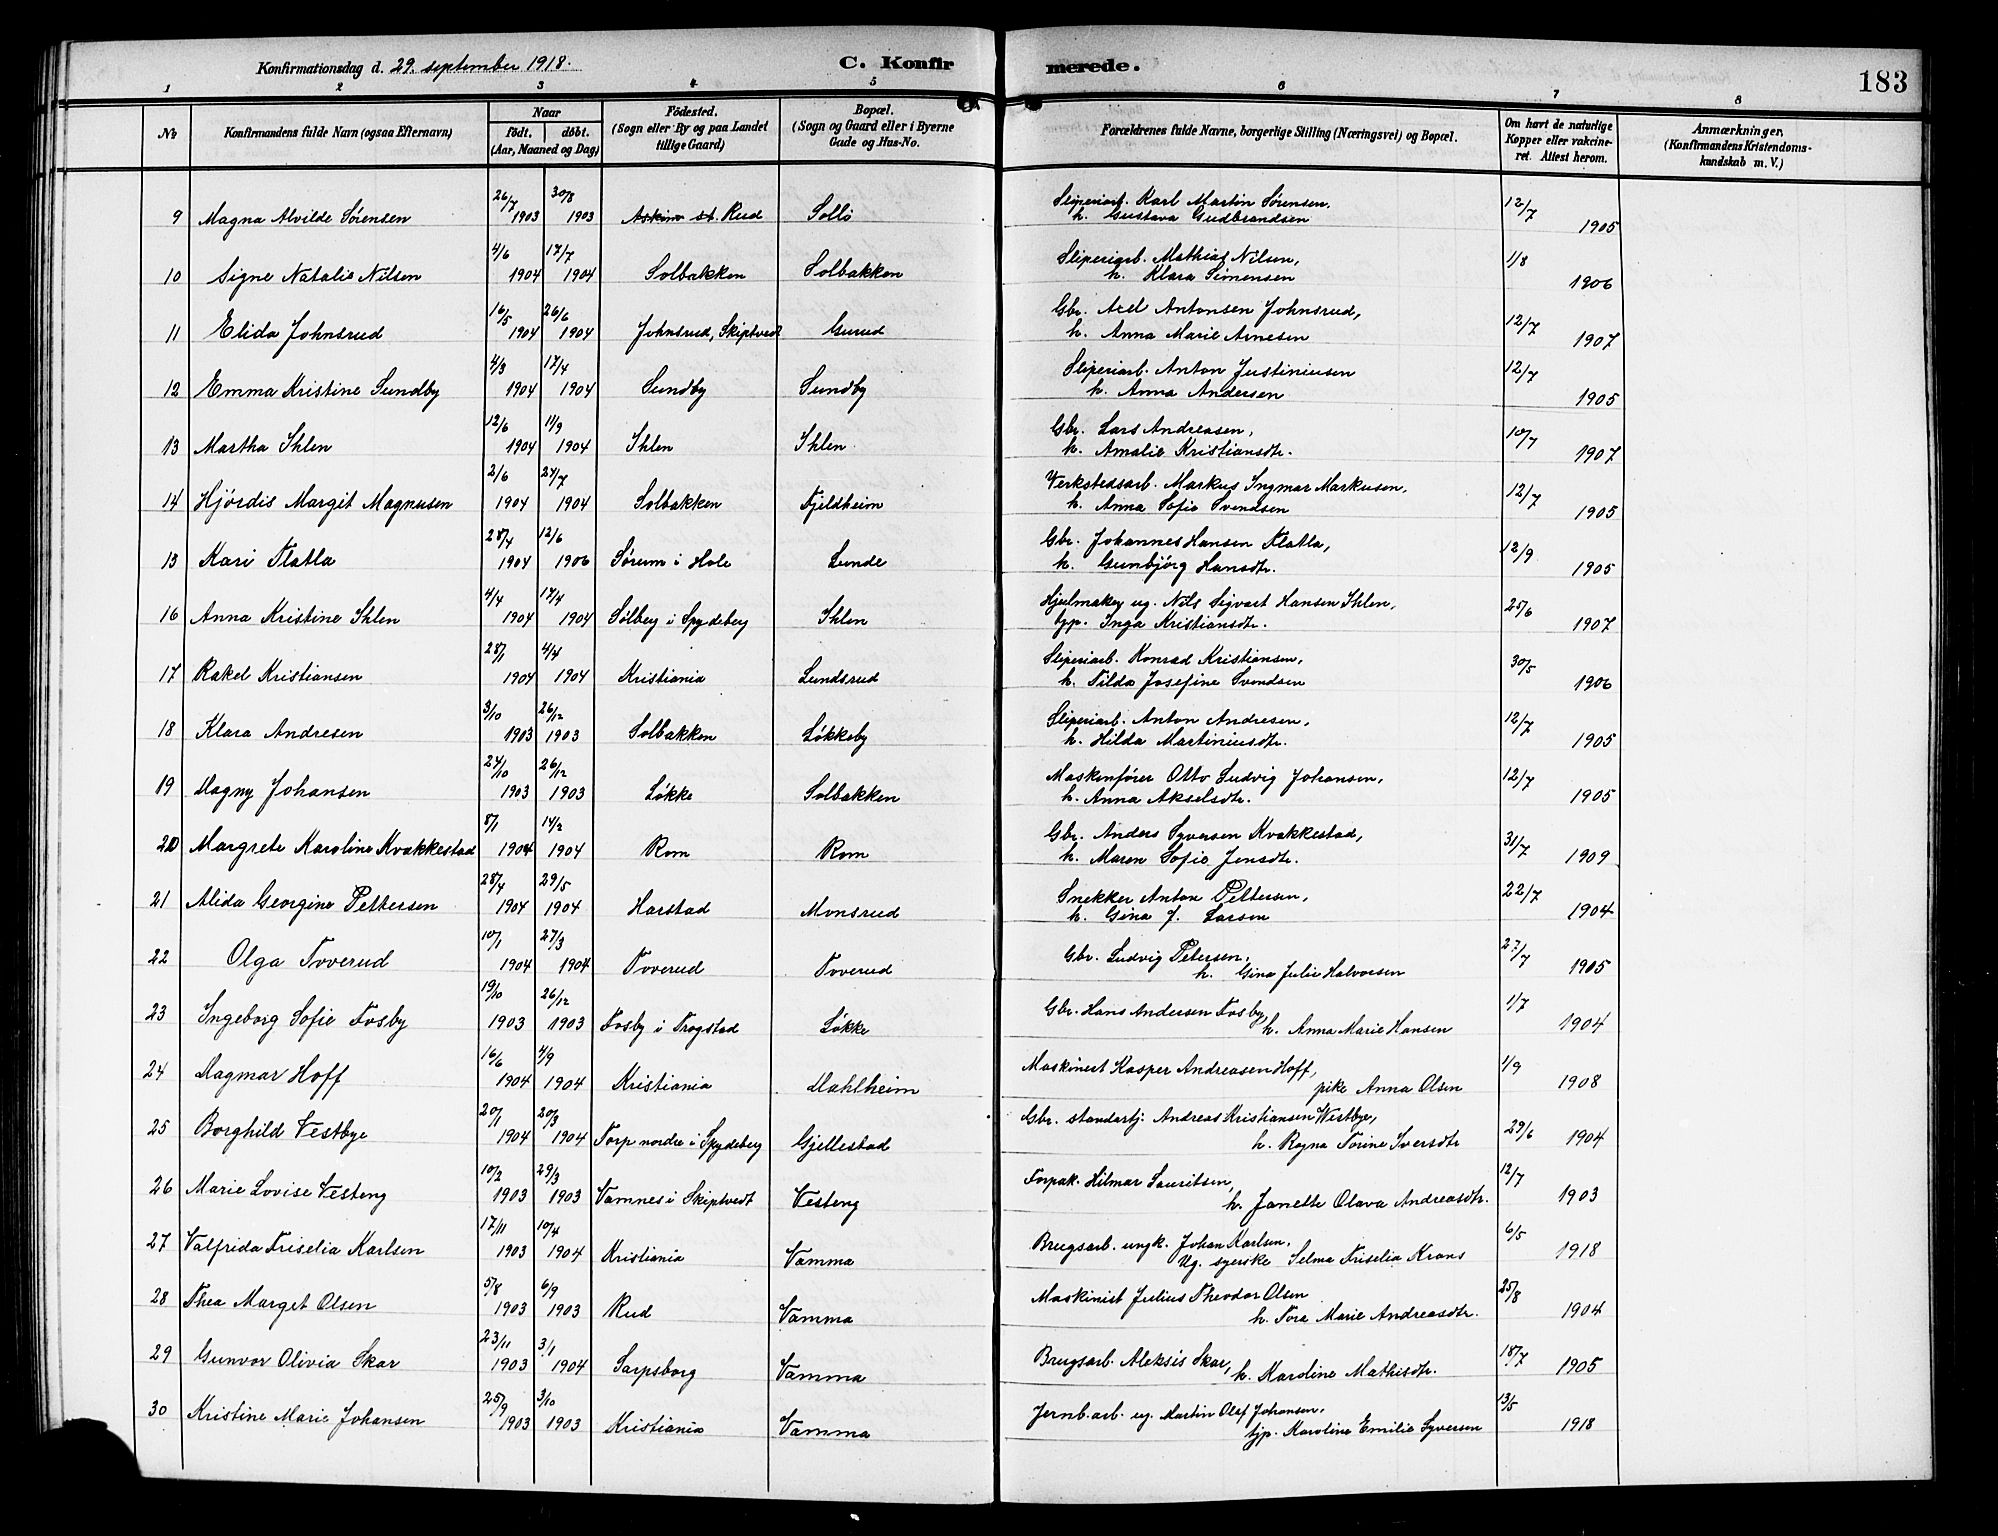 Konfirmationsdag d. 29. september 1918.
C. Konfirmerede.
183
1 2 3 4 5 6 7 8
No
Konfirmandens fulde Navn (ogsaa Efternavn)
Naar
födt. döbt.
(Aar, Maaned og Dag)
Födested.
(Sogn eller By og paa Landet
tillige Gaard)
Bopæl.
(Sogn og Gaard eller i Byerne
Gade og Hus-No.
Forældrenes fulde Navne, borgerlige Stilling (Næringsvei) og Bopæl.
Om havt de naturlige
Kopper eller vakcine-
ret. Attest herom.
Anmærkninger,
(Konfirmandens Kristendoms-
kundskab m. V.)
9 Magna Alvilde Sørensen 26/7 1903 30/8 1903 Askim st. Rud Sollö Sliperiarb. Karl Martin Sørensen, h. Gustava Gudbrandsen 12/7 1905
10 Signe Natalie Nilsen 4/6 1904 17/7 1904 Solbakken Solbakken Sliperiarb. Mathias Nilsen, h. Klara Simensen 1/8 1906
11 Elida Johnsrud 16/5 1904 26/6 1904 Johnsrud, Skiptvedt Gurud Gbr. Axel Antonsen Johnsrud, h. Anna Marie Arnesen 12/7 1907
12 Emma Kristine Sundby 4/3 1904 17/4 1904 Sundby Sundby Sliperiarb. Anton Justiniusen h. Anna Andersen 12/7 1905
13 Martha Ihlen 12/6 1904 11/9 1904 Ihlen Ihlen Gbr. Lars Andreasen, h. Amalie Kristiansdtr. 10/7 1907
14 Hjördis Margit Magnusen 2/6 1904 24/7 1904 Solbakken Fjeldheim Verkstedsarb. Markus Ingmar Markusen, h. Anna Sofie Svendsen 12/7 1905
15 Kari Flatla 28/4 1904 12/6 1906 Sørum i Hole Lunde Gbr. Johannes Hansen Flatla, h. Gunbjörg Hansdtr. 12/9 1905
16 Anna Kristine Ihlen 4/4 1904 17/4 1904 Sölberg i Spydeberg Ihlen Hjulmaker ug. Nils Sigvart Hansen Ihlen, tjp. Inga Kristiansdtr. 25/6 1907
17 Rakel Kristiansen 28/1 1904 4/4 1904 Kristiania Lundsrud Sliperiarb. Konrad Kristiansen, h. Tilda Josefine Svendsen 30/5 1906
18 Klara Andresen 3/10 1903 26/12 1903 Solbakken Løkkeby Sliperiarb. Anton Andresen, h. Hilda Martiniusdtr. 12/7 1905
19 Dagny Johansen 24/10 1903 26/12 1903 Løkke Solbakken Maskenfører Otto Ludvig Johansen, h. Anna Akselsdtr. 12/7 1905
20 Margrete Karoline Kvakkestad 8/1 1904 14/2 1904 Rom Rom Gbr. Anders Syversen Kvakkestad, h. Maren Sofie Jensdtr. 31/7 1909
21 Alida Georgine Pettersen 28/4 1904 29/5 1904 Harstad Monsrud Snekker Anton Pettersen, h. Gina J. Larsen 22/7 1904
22 Olga Toverud 10/1 1904 27/3 1904 Toverud Toverud Gbr. Ludvig Petersen, h. Gina Julie Halvorsen 27/7 1905
23 Ingeborg Sofie Fosby 19/10 1903 26/12 1903 Fosby i Trogstad Løkke Gbr. Hans Andersen Fosby, h. Anna Marie Hansen 1/7 1904
24 Dagmar Hoff 16/6 1904 4/9 1904 Kristiania Dahlheim Maskinist Kasper Andreasen Hoff, pike Anna Olsen 1/9 1908
25 Borghild Vestbye 20/1 1904 20/3 1904 Torp nordre i Spydeberg Gjellestad Gbr. standartj. Andreas Kristiansen Westbye, h. Ragna Torine Iversdtr 29/6 1904
26 Marie Lovise Vesteng 10/2 1903 29/3 1903 Vamnes i Skiptvedt Vesteng Forpak. Hilmar Lauritsen, h. Janette Olava Andreasdtr. 12/7 1903
27 Valfrida Friselia Karlsen 17/11 1903 10/4 1904 Kristiania Vamma Brugsarb. ungk. Johan Karlsen, ug. syerske Selma Friselia Krans 6/5 1918
28 Thea Marget Olsen 5/8 1903 6/9 1903 Rud Vamma Maskinist Julius Theodor Olsen h. Tora Marie Andreasdtr. 25/8 1904
29 Gunvor Olivia Skar 23/11 1903 3/1 1904 Sarpsborg Vamma Brugsarb. Aleksis Skar, h. Karoline Mathisdtr. 18/7 1905
30 Kristine Marie Johansen 25/9 1903 3/10 1903 Kristiania Vamma Jernb.arb. ug. Martin Olaf Johansen, tjp. Karoline Emilie Syversen 13/5 1918